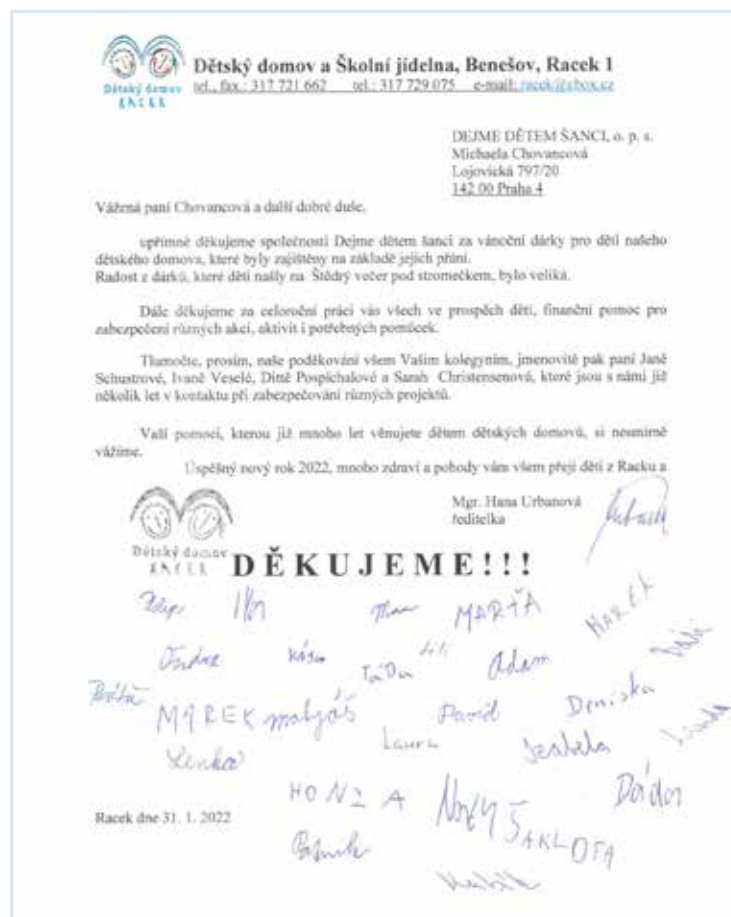 Dětský domov
RACEK
Dětský domov a Školní jídelna, Benešov, Racek 1
tel., fax.: 317 721 662 tel.: 317 729 075 e-mail: racek@cbox.cz
DEJME DĚTEM ŠANCI, o. p. s.
Michaela Chovancová
Lojovická 797/20
142 00 Praha 4
Vážená paní Chovancová a další dobré duše,
upřímně děkujeme společnosti Dejme dětem šanci za vánoční dárky pro děti našeho
dětského domova, které byly zajištěny na základě jejich přání.
Radost z dárků, které děti našly na Štědrý večer pod stromečkem, bylo veliká.
Dále děkujeme za celoroční práci vás všech ve prospěch dětí, finanční pomoc pro
zabezpečení různých akcí, aktivit i potřebných pomůcek.
Tlumočte, prosím, naše poděkování všem Vašim kolegyním, jmenovitě pak paní Janě
Schustrové, Ivaně Veselé, Ditě Pospíchalové a Sarah Christensenová, které jsou s námi již
několik let v kontaktu při zabezpečování různých projektů.
Vaší pomoci, kterou již mnoho let věnujete dětem dětských domovů, si nesmírně
vážíme.
Úspěšný nový rok 2022, mnoho zdraví a pohody vám všem přejí děti z Racku a
Mgr. Hana Urbanová
ředitelka
Dětský domov
RACEK
DĚKUJEME!!!
MARŤA
MAREK
Ondra
Adam
MAREK matyáš
David
Deniska
Lenka
Laura
Izabela
HONZA
ŠAKLOTA
Racek dne 31. 1. 2022